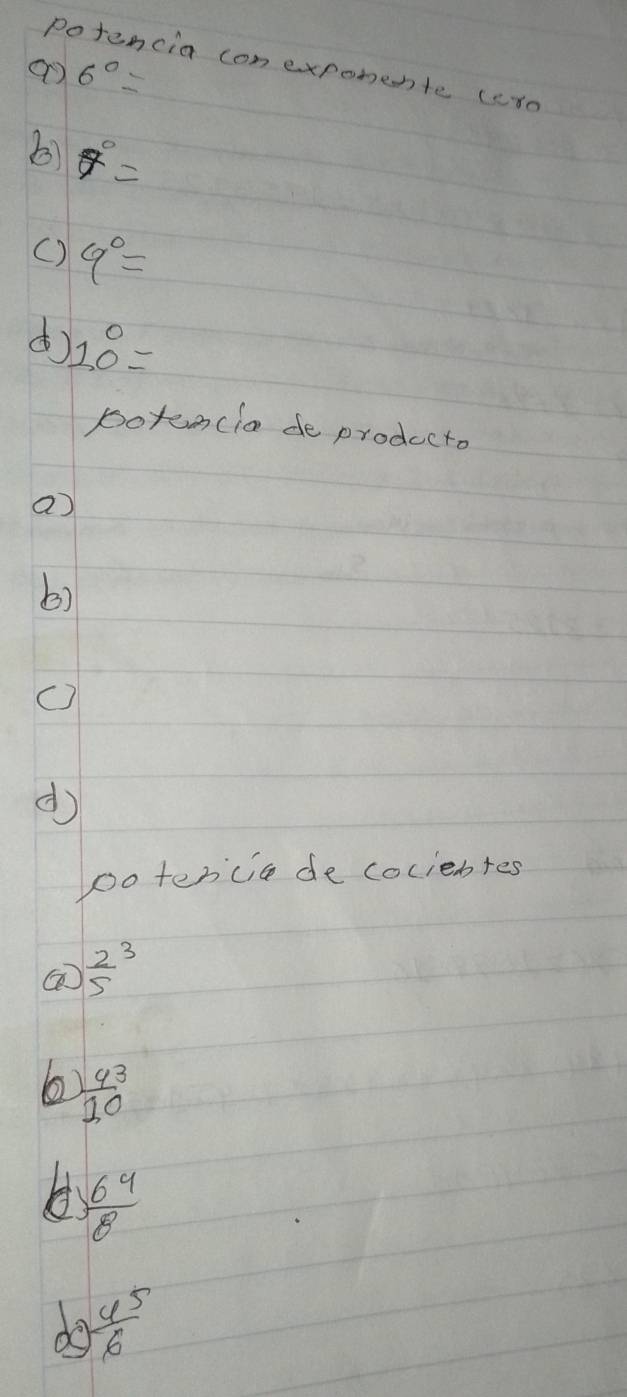 potencia con exponente cero
a) 6⁰=
b) 7⁰=
c) 9⁰=
d) 10⁰=
potencia de producto
a)
b)
c)
d)
potencia de cocientes
a) 2/5 ³
b) 4³/10
d) 6⁴/8
d) 4⁵/6